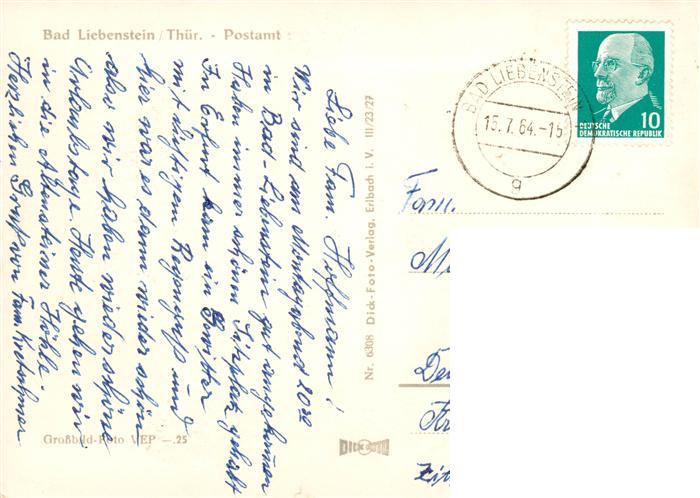 Bad Liebenstein/Thür. - Postamt
Liebe Fam. Hoffmann!
Wir sind am Montagabend 20⁰⁰
in Bad-Liebenstein gut angekommen
Haben immer schönen Sitzplatz gehabt
In Erfurt kam ein Gewitter
mit kräftigem Regenguß und
hier war es dann wieder schön
also wir haben wieder schöne
Urlaubstage. Heute gehen wir
in die Altensteiner Höhle.
Herzlichen Gruß von Fam. Kretschmer
Großbild-Foto VEP —.25
Nr. 6308 Dick-Foto-Verlag, Erlbach i. V. III/23/27
DICK FOTO
BAD LIEBENSTEIN
15.7.64.-15
a
10
DEUTSCHE
DEMOKRATISCHE REPUBLIK
Fam.